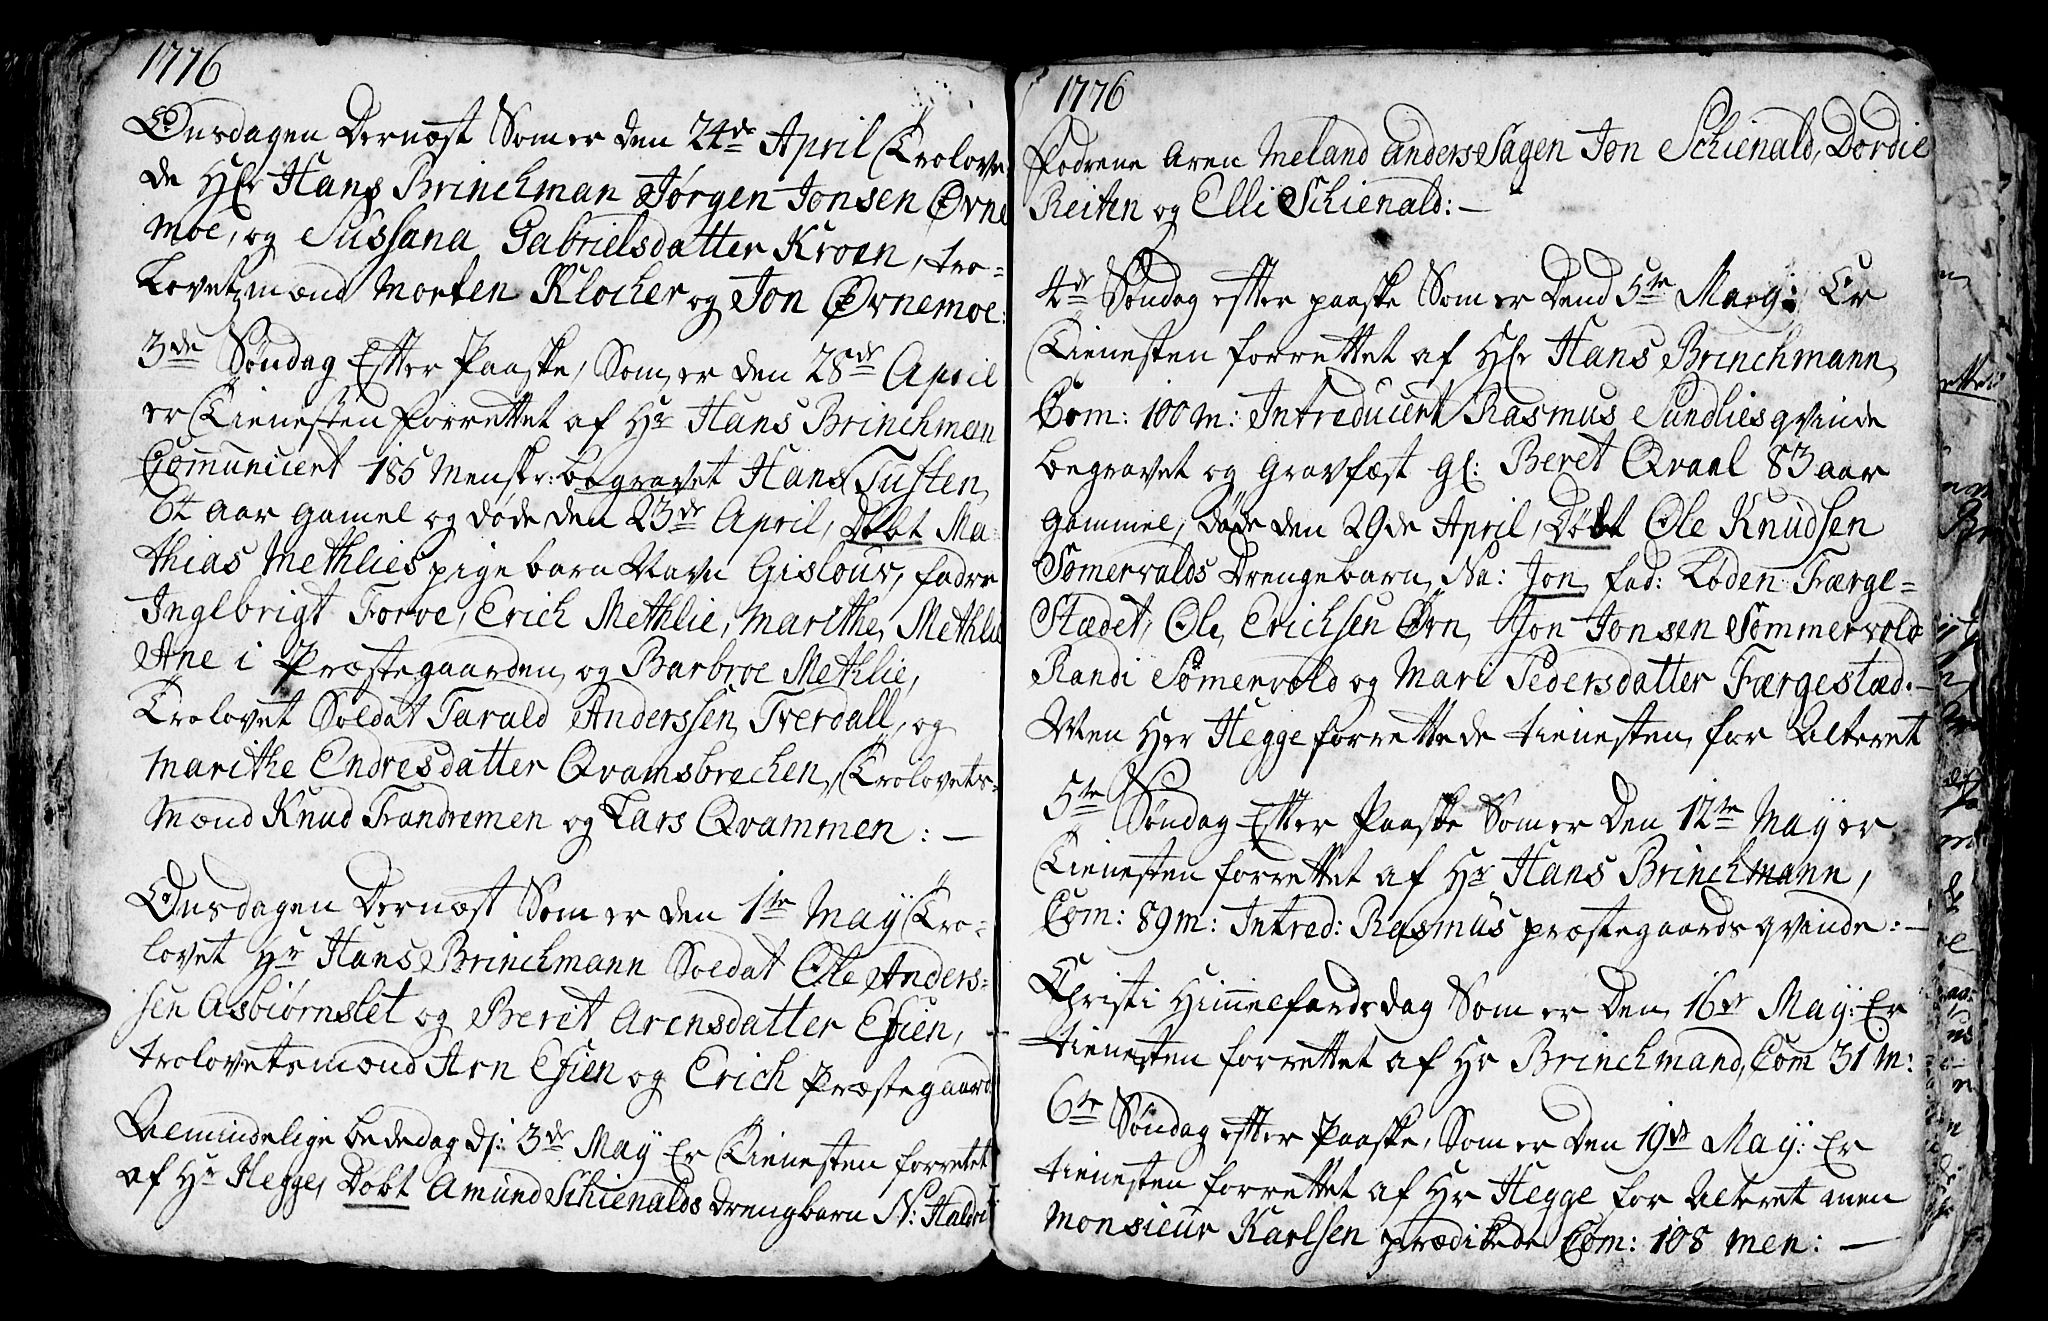 1776
Onsdagen Dernæst Som er den 24de April Trolove
de Hr Hans Brinchman Jørgen Jonsen Ørne
moe, og Sussana Gabrielsdatter Kroen, tro-
Lovetzmænd Morten Klocher og Jon Ørnemoe:
3de Søndag Efter Paaske, Som er den 28de April
er Tienesten forrettet af Hr Hans Brinchman
Comunicert 185 Menskr: begravet Hans Tusten
aar gamel og døde den 23de April, Døbt Ma-
thias Methlies pige barn Navn Gislour, fadre
Ingebrigt Forve, Erich Methlie, Marithe Methlie
Ane i Præstegaarden og Barbroe Methlie,
Trolovet Soldat Tarald Anderssen Tverdall, og
Marithe Endresdatter Qvamsbrechen, Trolovets-
Mænd Knud Trandremen og Lars Qvammen: —
Onsdagen Dernæst Som er den 1te May Tro-
lovet Hr Hans Brinchmann Soldat Ole Anders-
sen Asbiørnslet og Beret Arensdatter Efien,
trolovetsmænd Arn Efien og Erich Præstegaard
Almindelige bededag d: 3de May Er Tienesten forretet
af Hr Hegge, Døbt Amund Schienalds drengbarn N: Haldor
1776
Fodrene Aren Meland Anders Sagen Jon Schienald, Dordie
Reiten og Elli Schienald: —
4de Søndag efter paaske Som er Dend 5te May: Er
Tienesten forrettet af Hr Hans Brinchmann,
Com: 100 M: Intreducert Rasmus Sundlies qvinde
begravet og gravfæst gl: Beret Qvaal 83 aar
gammel, døde den 29de April, Døbt Ole Knudsen
Sømervalds Drengebarn, Na: Jon, fad: Løden Færge-
Stædet, Ole Erichsen Ørn, Jon Jonsen Sømmervold
Randi Sømervold og Mari Pedersdatter Færgestæd. —
Men Her Hegge forrettede tienesten for Alteret
5te Søndag Efter Paaske Som er Den 12te May er
Tienesten forrettet af Hr Hans Brinchmann,
Com: 89 M: Intred: Rasmus præstegaards qvinde: —
Christi Himmelfardsdag Som er Den 16de May: Er
tienesten forrettet af Hr Brinchmand, Com 31 M:
6te Søndag efter Paaske, Som er Den 19de May: Er
tienesten forrettet af Hr Hegge for Alteret men
Monsieur Karlsen prædikede Com: 108 Men: —